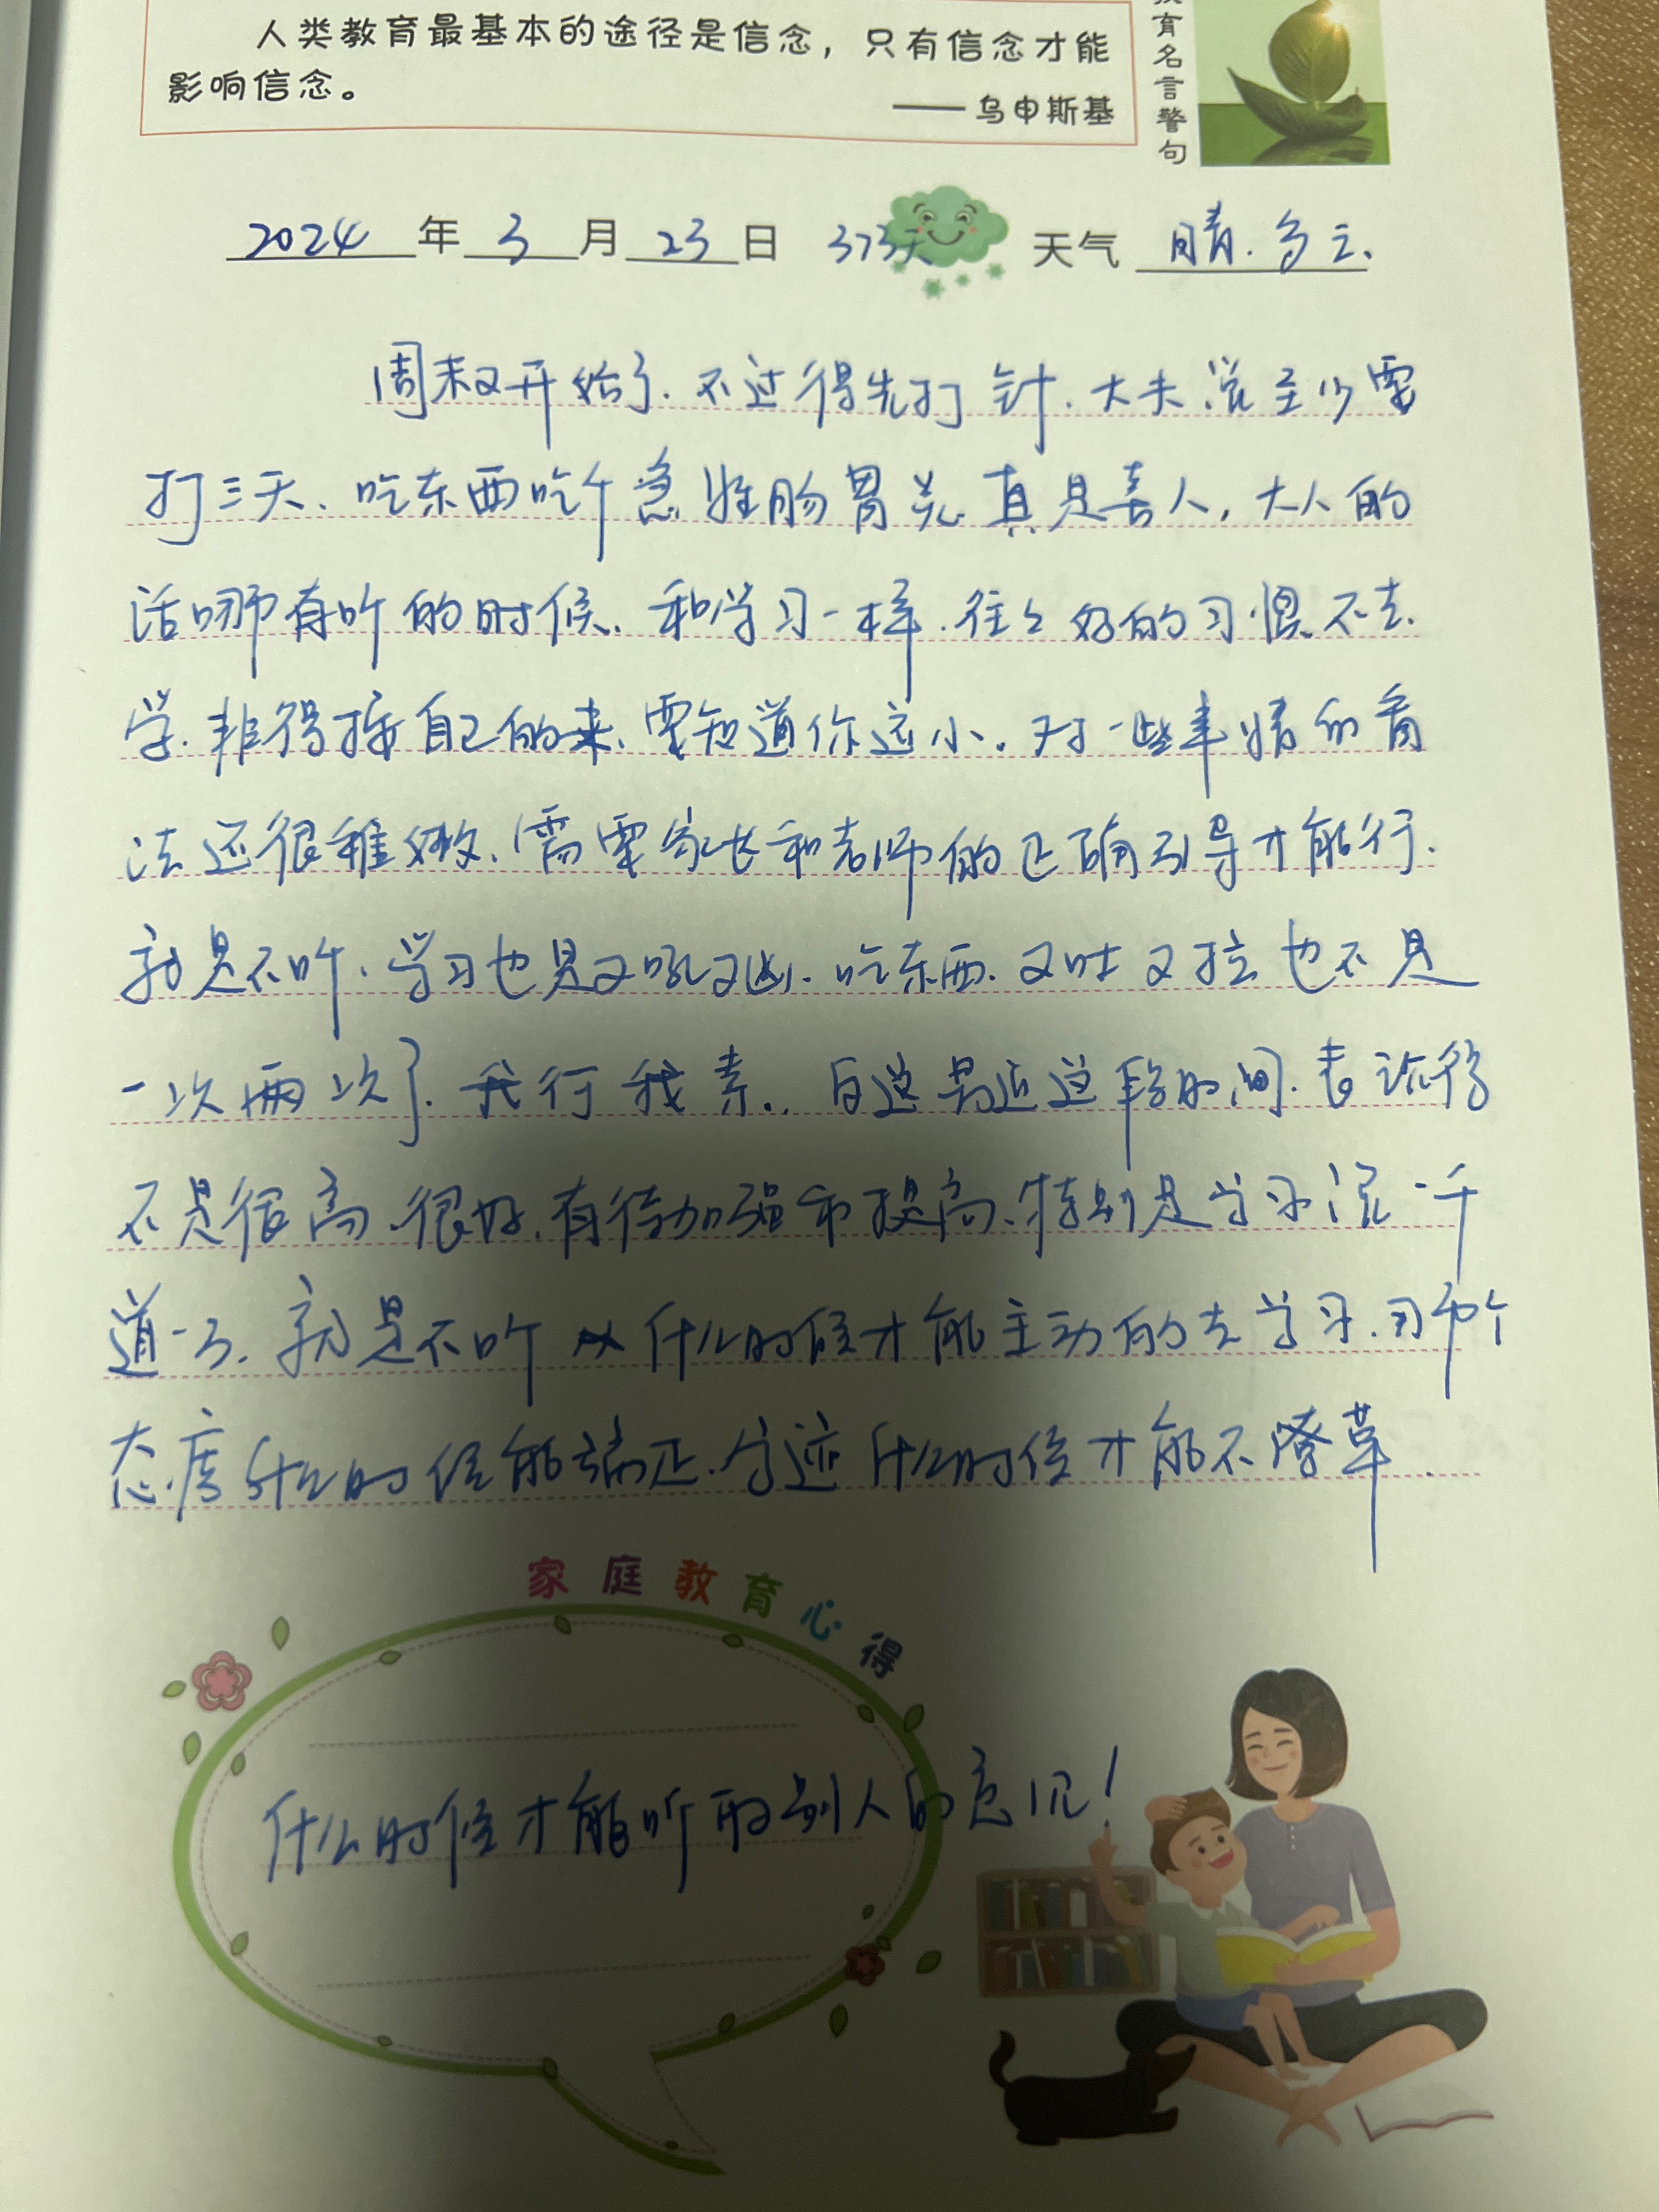 人类教育最基本的途径是信念，只有信念才能
影响信念。
——乌申斯基
育名言警句
2024年3月23日 373天 天气 晴.多云.
周末又开始了.不过得先打针.大夫说至少需
打三天、吃东西吃个急性肠胃炎真是喜人,大人的
话哪有听的时候.和学习一样.往往好的习惯不去.
学.非得按自己的来、要知道你还小。对一些事情的看
法还很稚嫩、需要家长和老师的正确引导才能行.
就是不听.学习也是又吼又凶.吃东西.又吐又拉也不是
一次两次了.我行我素..自这最近这段时间.表现得
不是很高.很好.有待加强和提高、特别是学习说一千
道一万.就是不听 什么时候才能主动的去学习.那个
态度什么时候能端正.字迹什么时候才能不潦草.
家庭教育心得
什么时候才能听取别人的意见!